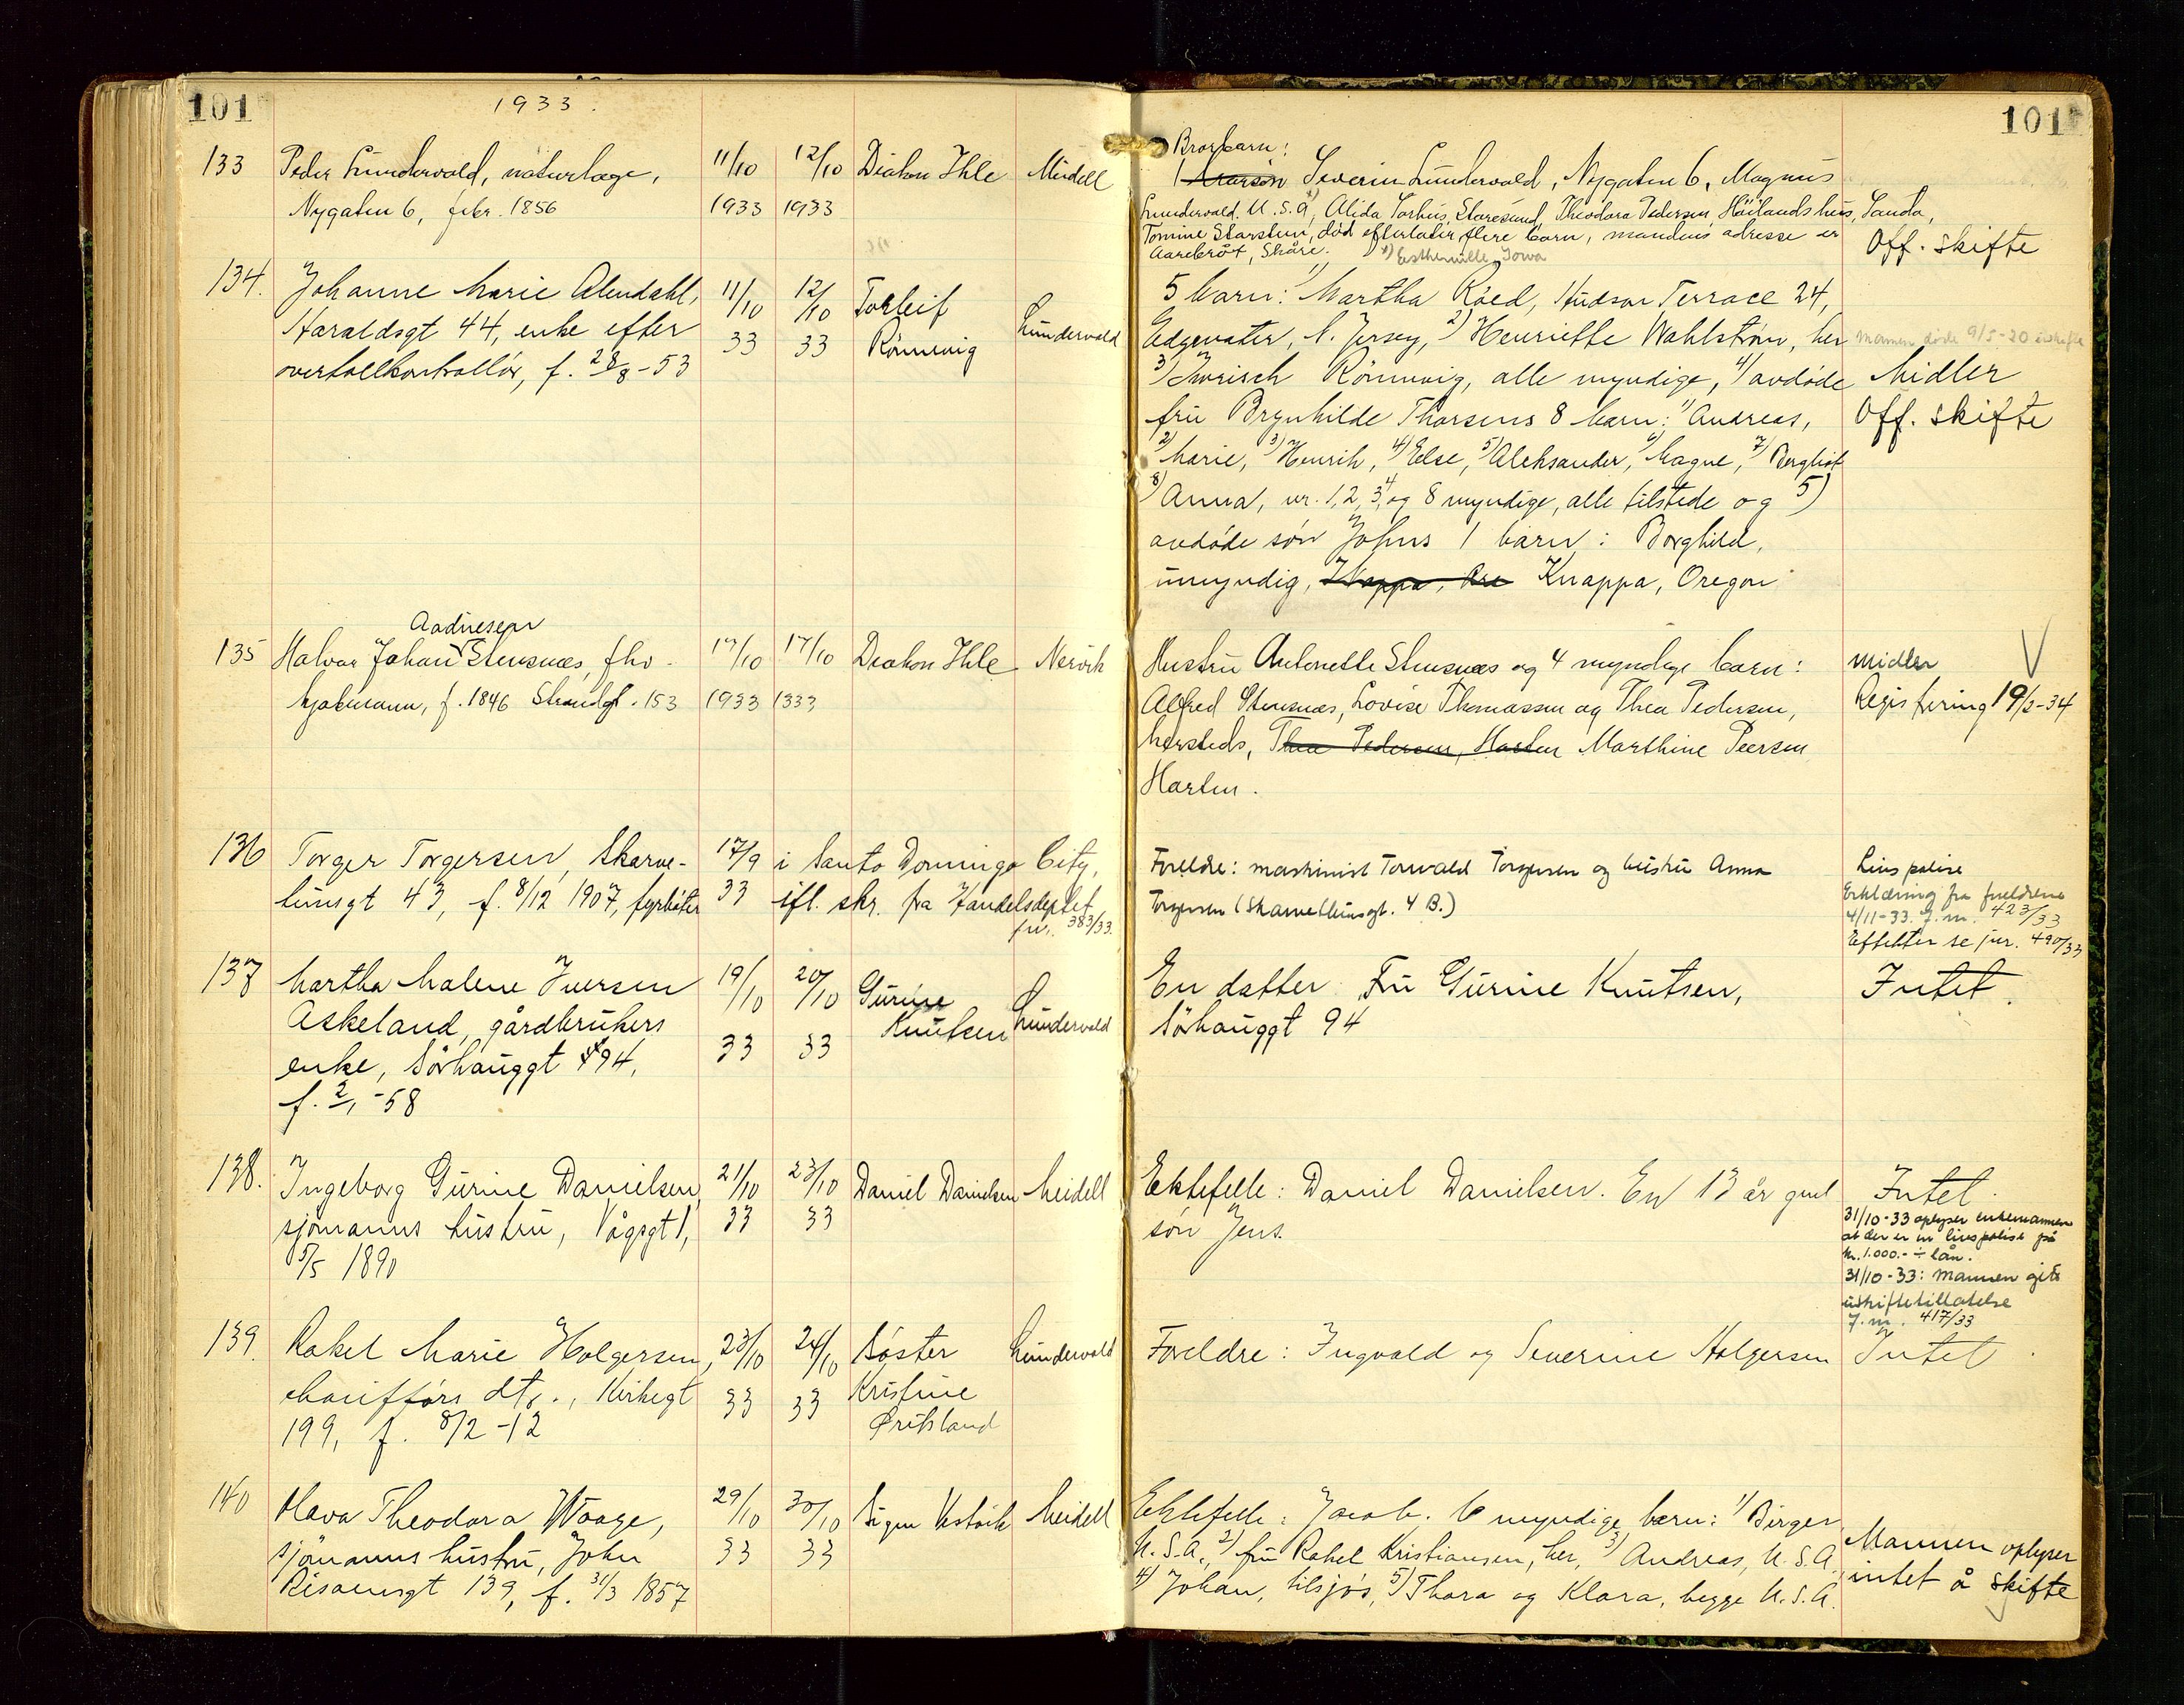 101
1933.
133 Peder Lundervold, naturlæge, 11/10 12/10 Diakon Ihle Meidell
Nygaten 6, febr. 1856 1933 1933
134. Johanne Marie Alendahl, 11/10 12/10 Torleif Lundervold
Haraldsgt 44, enke efter 33 33 Rönnevig
overtollkontrollör, f. 28/8-53
Aadnesen
135 Halvor Johan Stensnæs, fhv. 17/10 17/10 Diakon Ihle Nervik
f. 1846 Strandgt. 153 1933 1333
136 Torger Torgersen, Skarve- 17/9 i Santo Domingo City,
43, f. 8/12 1907, fyrbøter 33 ifl. skr. fra Handelsdeptet
383/33.
137 Martha Malene Iversen 19/10 20/10 Gurine Lundervold
Askeland, gårdbrukers 33 33 Knutsen
enke, Sörhauggt 94,
f. 2/1-58
138. Ingeborg Gurine Danielsen, 21/10 23/10 Daniel Danielsen Meidell
sjömanns hustru, Vågsgt 1, 33 33
5/5 1890
139. Rakel Marie Holgersen, 23/10 24/10 Söster Lundervold
chaufförs dtr., Kirkegt 33 33 Kristine
199, f. 8/2-12 Øriksland
140 Olava Theodora Waage, 29/10 30/10 Signe Vestvik Meidell
sjömanns hustru, John 33 33
Risøensgt 139, f. 31/3 1857
101
Brorbarn:
Severin Lundervold, Nygaten 6, Magnus
Lundervold. U.S.A, Alida Sørhus, Staresund, Theodora Pedersen Höilandshus, Sanda,
Tomine Skarstein, död efterlater flere barn, mandens adresse er
Skåre. 1) Estherville Iowa
Off. skifte
5 barn: 1) Martha Röed, Hudson Terrace 24,
Edgewater, N. Jersey, 2) Henriette Wahlström, her
Mannen døde 9/5-20
3) Rönnevig, alle myndige, 4) avdöde
Midler
fru Brynhilde Thorsens 8 barn: 1) Andreas,
Off. skifte
2) Marie, 3) Henrik, 4) Else, 5) Aleksander, 6) Magne, 7) Bergliot
8) Anna, nr. 1, 2, 3, 4 og 8 myndige, alle tilstede og 5)
avdöde sön Johns 1 barn: Borghild,
umyndig, Knappa, Ore Knappa, Oregon
Hustru Antonette Stensnæs og 4 myndige barn:
midler
Alfred Stensnæs, Lovise Thomassen og Thea Pedersen,
Registrering 19/3-34
hersteds, Thea Pedersen, Hasten Marthine Peersen
Foreldre: maskinist Torvald Torgersen og hustru Anna
Torgersen (Skarvelhusgt. 4 B.)
Livspolise
Erklæring fra foreldrene
4/11-33. J.nr. 423/33
Effekter se jnr. 490/33
En datter Fru Gurine Knutsen,
Sörhauggt 94
Intet.
Ektefelle: Daniel Danielsen. En 13 år gml
sön Jens.
Intet.
31/10-33 oplyser enkemannen
at der er en livspolise på
kr. 1.000.- ÷ lån.
31/10-33: Mannen gitt
uskiftetillatelse
J.nr. 417/33
Foreldre: Ingvald og Severine Holgersen
Intet.
Ektefelle: Jacob. 6 myndige barn: 1) Birger
U.S.A., 2) fru Rakel Kristiansen, her, 3) Andreas, U.S.A.
4) Johan, tilsjøs, 5) Thora og Klara, begge U.S.A.
Mannen oplyser
intet å skifte